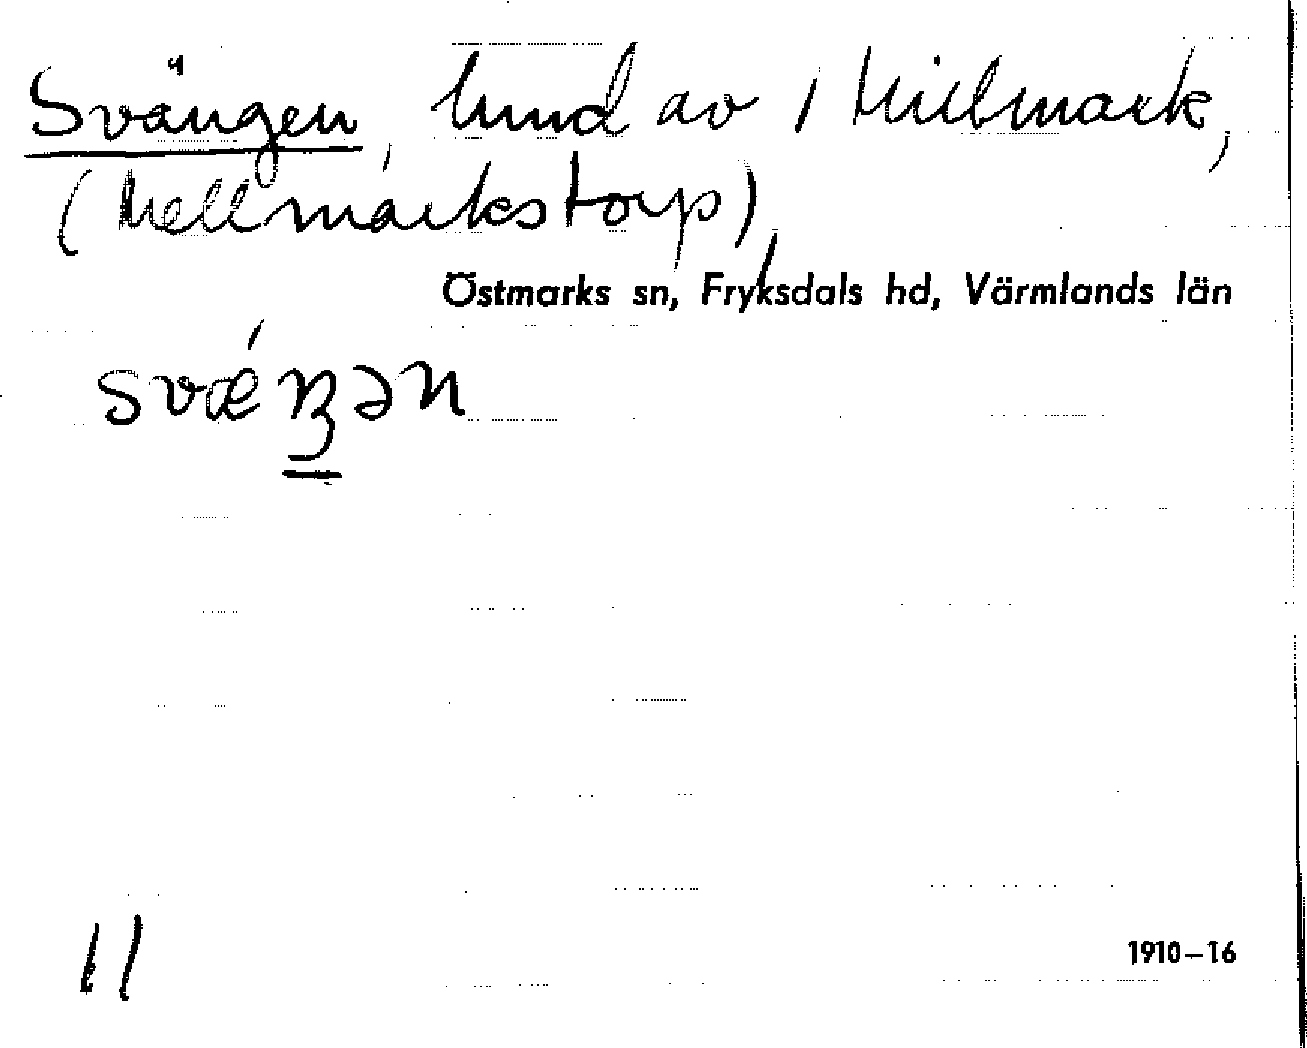 Svängen, hmd av 1 Millmark,
(Mellmarkstorp),
Östmarks sn, Fryksdals hd, Värmlands län
svǽŋən
11
1910–16